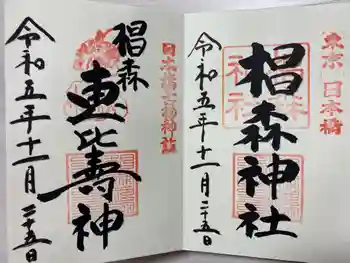 東京 日本橋
椙森神社
椙森神社
令和五年十一月二十五日
日本橋七福神詣
椙森
恵比壽神
令和五年十一月二十五日